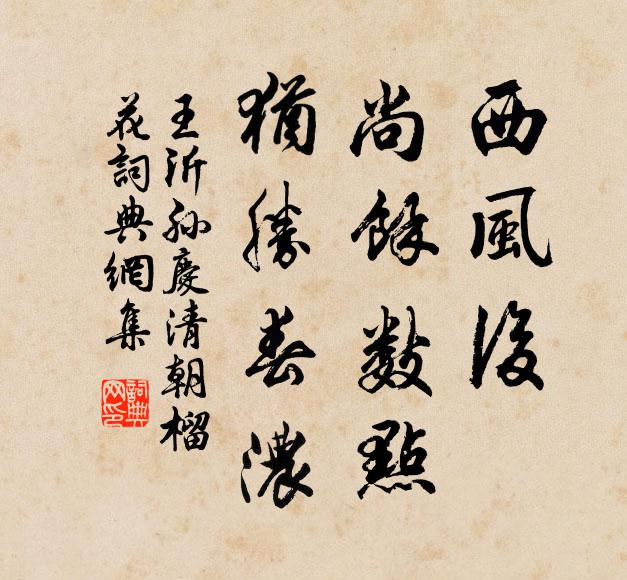 西風後
尚餘數點
猶勝春濃
王沂孫慶清朝榴
花詞典網集
詞典
网印